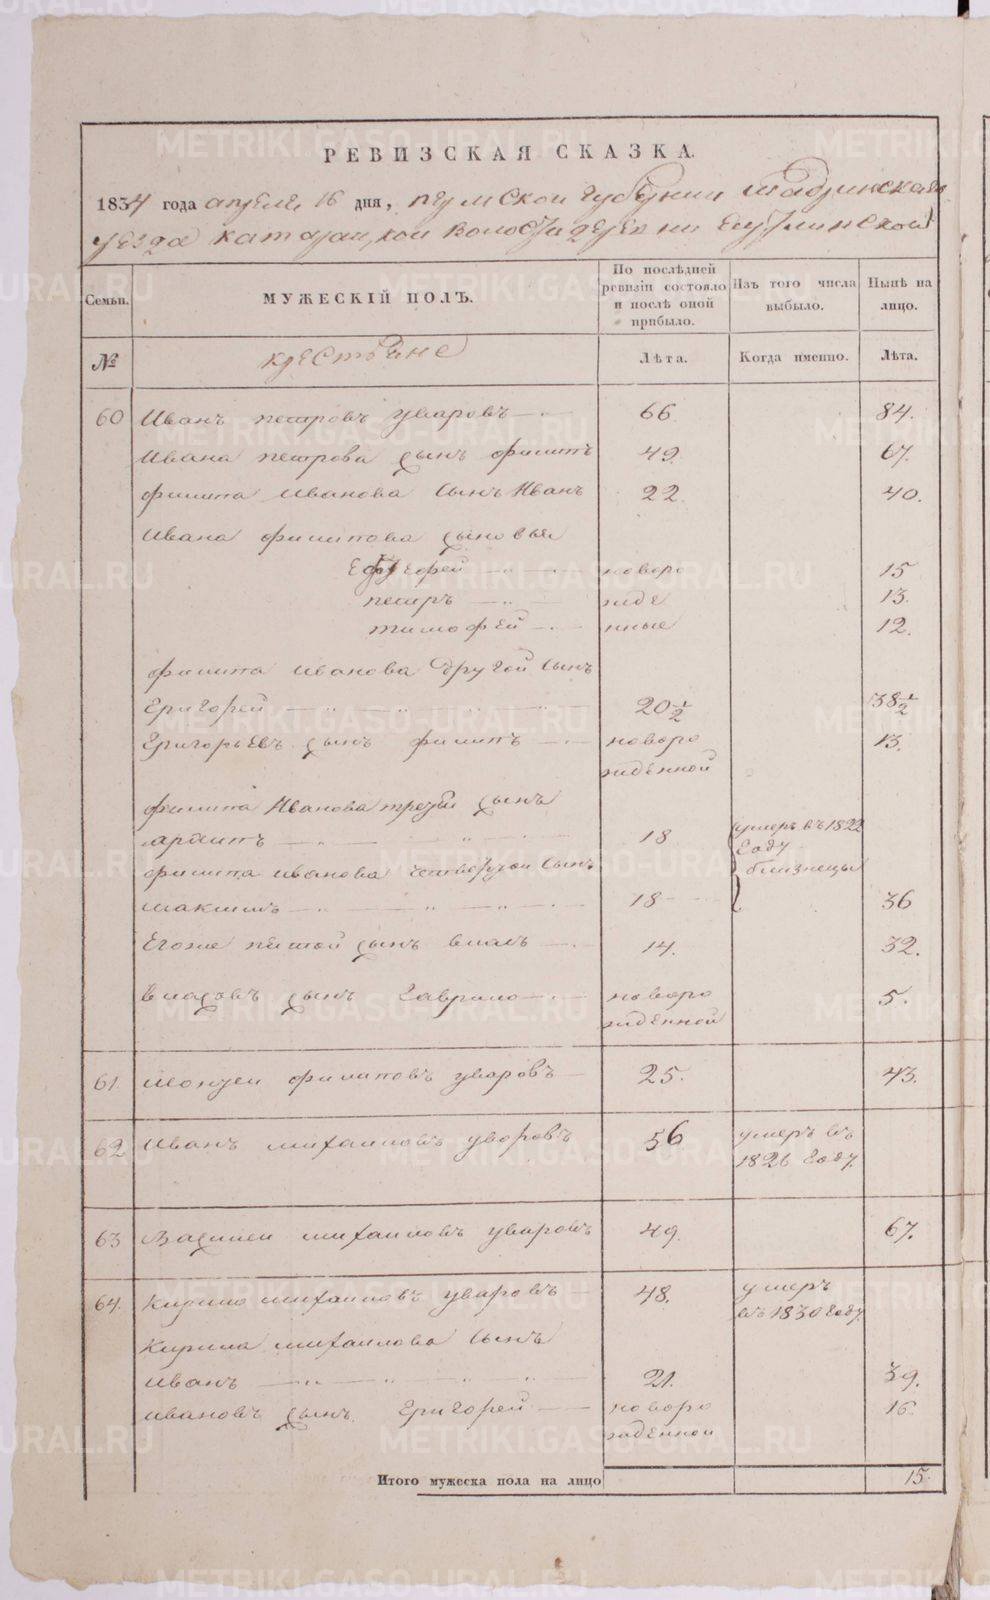 РЕВИЗСКАЯ СКАЗКА.
1834 года апреля 16 дня, пермской губернии шадринскаго
уезда катайской волости деревни
Семьи. МУЖЕСКІЙ ПОЛЪ. По послѣдней ревизіи состояло и послѣ оной прибыло. Изъ того числа выбыло. Нынѣ на лицо.
№ крестьяне Лѣта. Когда именно. Лѣта.
60 Иванъ петровъ уваровъ 66 84.
Ивана петрова сынъ филипъ 49. 67.
филипа Иванова сынъ Иванъ 22 40.
Ивана филипова сыновья
Григорей новоро 15
петръ жде 13.
тимофей нные 12.
филипа иванова другой сынъ
Григорей 20 1/2 38 1/2
Григорьевъ сынъ филипъ новоро 13.
жденной
филипа Иванова третей сынъ умеръ въ 1822
архипъ 18 году
филипа иванова четвертой сынъ близнецы
максимъ 18 36
Егоже пятой сынъ власъ 14. 32.
власовъ сынъ Гаврило новоро 5.
жденной
61. Моисеи филиповъ уваровъ 25. 43.
62 Иванъ михаиловъ уворовъ 56 умеръ въ
1826 году.
63 Василеи михаиловъ уваровъ 49. 67.
64. Кирило михаиловъ уваровъ 48. умеръ
въ 1830 году
Кирила михаилова сынъ
иванъ 21. 39.
ивановъ сынъ Григорей новоро 16.
жденной
Итого мужеска пола на лицо 15.
METRIKI.GASO-URAL.RU